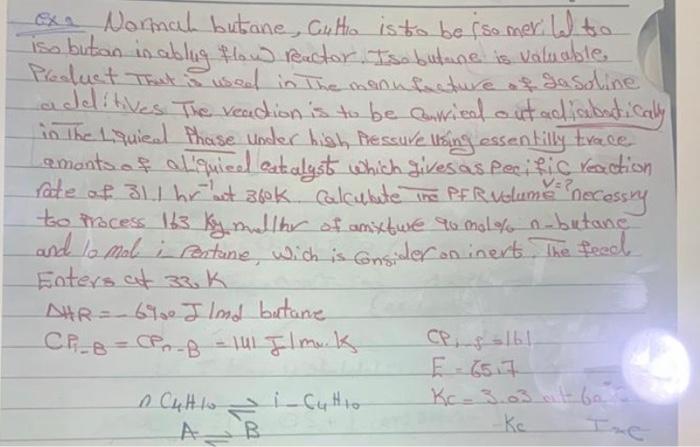 Ex2 Normal butane, C4H10 is to be isomeriz to
iso butan in a blug flow reactor. Isobutane is valuable
Product That is used in The manufacture of gasoline
additives The reaction is to be Carried out adiabatically
in The Liquied Phase under high Pressure using essentilly trace
amonts of aliquied catalyst which gives a specific reaction
rate of 31.1 hr⁻¹ at 360K. Calculate The PFR volume V=? necessry
to Process 163 Kg mall hr of a mixture 90 mol% n-butane
and 10 mol i Pentane, Wich is Consider on inert. The feed
Enters at 330 K
ΔHR = -6900 J/mol butane
CPi-B = CPn-B = 141 J/mol.K CPi-p = 161
E = 65.7
n C4H10 ⇌ i-C4H10 Kc = 3.03 at 60°C
A ⇌ B Kc